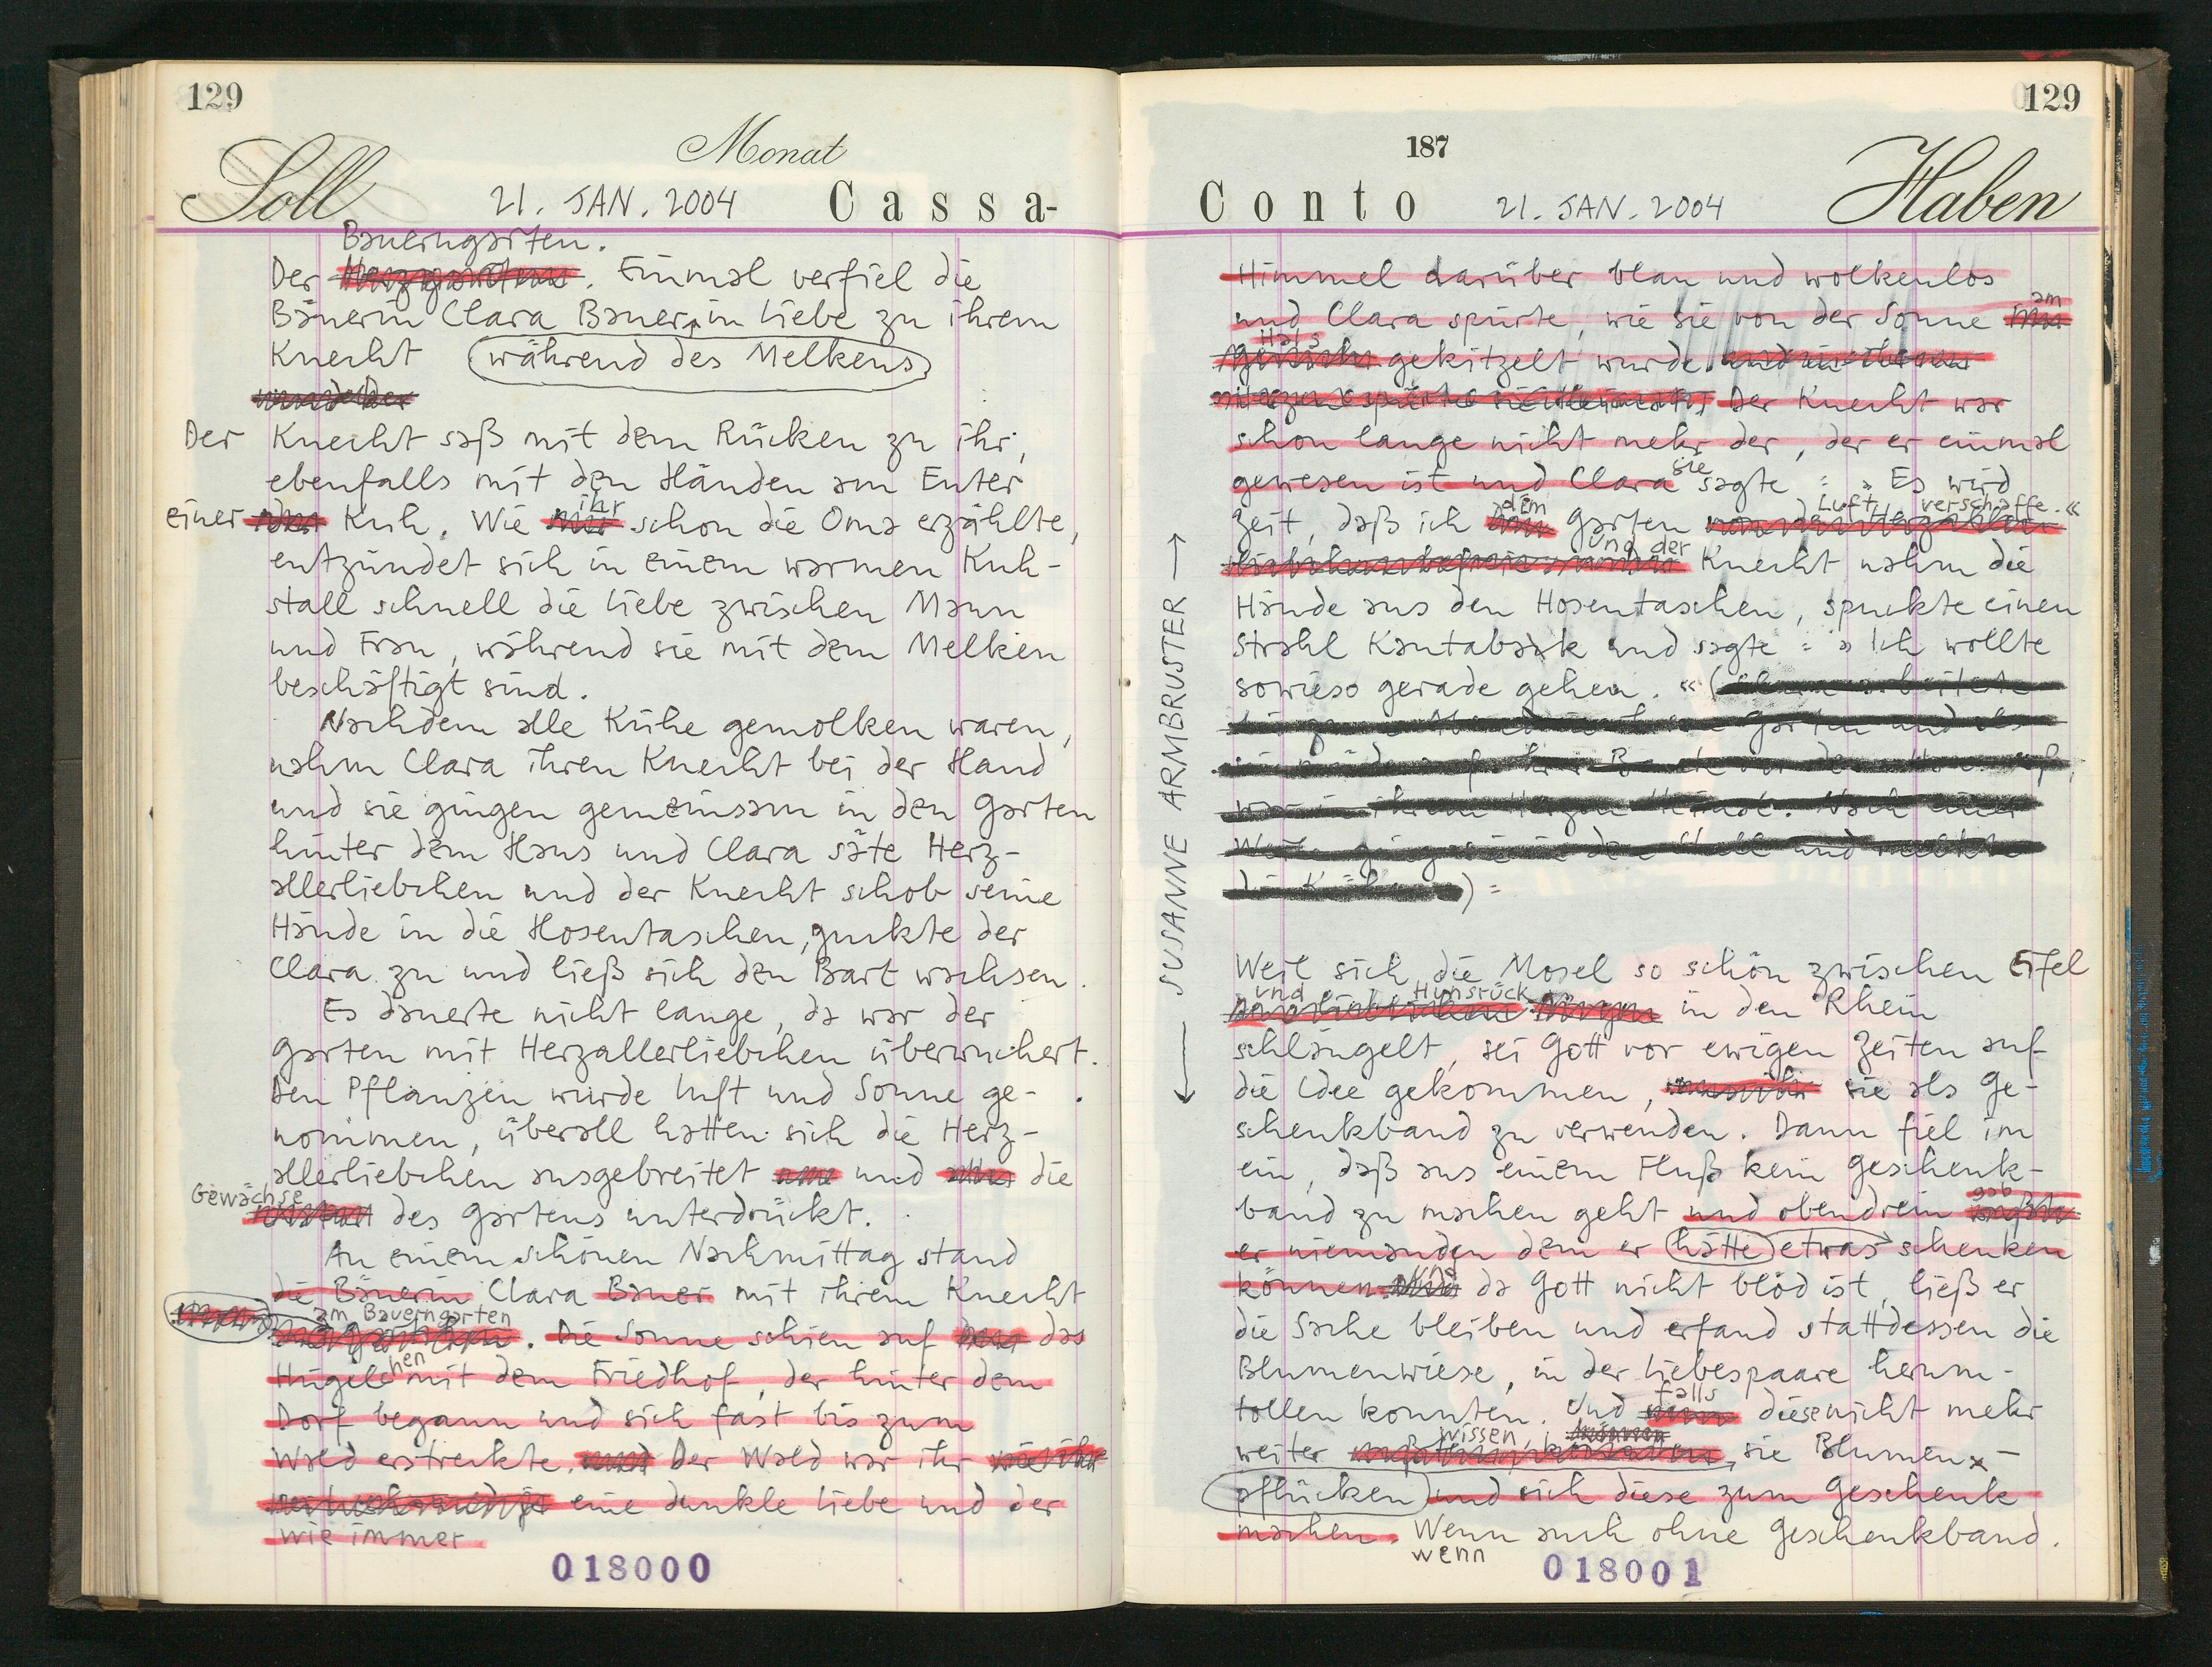 129
Monat
Soll 21. JAN. 2004 Cassa-
Bauerngarten.
Der Herzgarten. Einmal verfiel die
Bäuerin Clara Bauer, in Liebe zu ihrem
Knecht während des Melkens
Der Knecht saß mit dem Rücken zu ihr,
ebenfalls mit den Händen am Euter
ihr
einer Kuh. Wie mir schon die Oma erzählte,
entzündet sich in einem warmen Kuh-
stall schnell die Liebe zwischen Mann
und Frau, während sie mit dem Melken
beschäftigt sind.
Nachdem alle Kühe gemolken waren,
nahm Clara ihren Knecht bei der Hand
und sie gingen gemeinsam in den Garten
hinter dem Haus und Clara säte Herz-
allerliebchen und der Knecht schob seine
Hände in die Hosentaschen, guckte der
Clara zu und ließ sich den Bart wachsen.
Es dauerte nicht lange, da war der
Garten mit Herzallerliebchen überwuchert.
Den Pflanzen wurde Luft und Sonne ge-
nommen, überall hatten sich die Herz-
allerliebchen ausgebreitet und die
Gewächse
des Gartens unterdrückt.
An einem schönen Nachmittag stand
die Bäuerin Clara Bauer mit ihrem Knecht
am Bauerngarten
. Die Sonne schien auf das
hen
Hügel mit dem Friedhof, der hinter dem
Dorf begann und sich fast bis zum
Wald erstreckte. und Der Wald war ihr
eine dunkle Liebe und der
wie immer
018000
129
187
Conto 21. JAN. 2004 Haben
Himmel darüber blau und wolkenlos
am
und Clara spürte, wie sie von der Sonne im
Hals
Gesicht gekitzelt wurde.
Der Knecht war
schon lange nicht mehr der, der er einmal
sie
gewesen ist und Clara sagte: »Es wird
dem Luft verschaffe.«
Zeit, daß ich den Garten
und der
Knecht nahm die
Hände aus den Hosentaschen, spuckte einen
Strahl Kautabak und sagte: »Ich wollte
sowieso gerade gehen.« (
Garten und als
)=
← SUSANNE ARMBRUSTER →
Weil sich die Mosel so schön zwischen Eifel
und Hunsrück
in den Rhein
schlängelt, sei Gott vor ewigen Zeiten auf
die Idee gekommen, sie als Ge-
schenkband zu verwenden. Dann fiel im
ein, daß aus einem Fluß kein Geschenk-
gab
band zu machen geht und obendrein wußte
er niemanden dem er hätte etwas schenken
Und
können. da Gott nicht blöd ist, ließ er
die Sache bleiben und erfand stattdessen die
Blumenwiese, in der Liebespaare herum-
falls
tollen konnten. Und diese nicht mehr
wissen, können
weiter, sie Blumen -
pflücken und sich diese zum Geschenk
machen. Wenn auch ohne Geschenkband.
wenn
018001